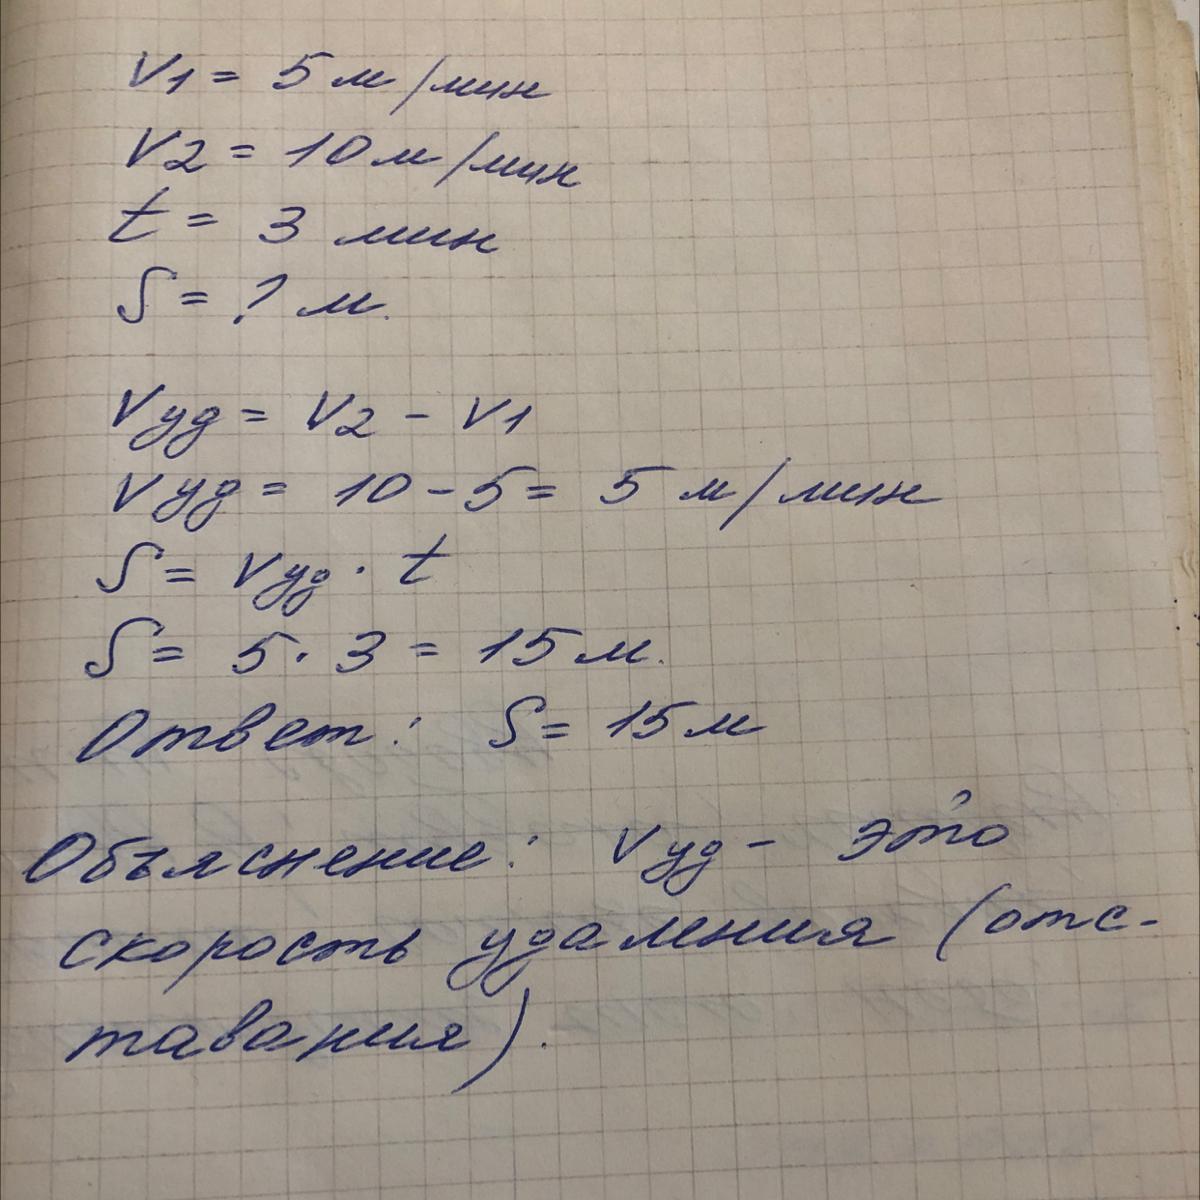 V1 = 5 м/мин
V2 = 10 м/мин
t = 3 мин
S = ? м.
Vуд = V2 - V1
Vуд = 10 - 5 = 5 м/мин
S = Vуд · t
S = 5 · 3 = 15 м.
Ответ: S = 15 м
Объяснение: Vуд - это
скорость удаления (отс-
тавания).